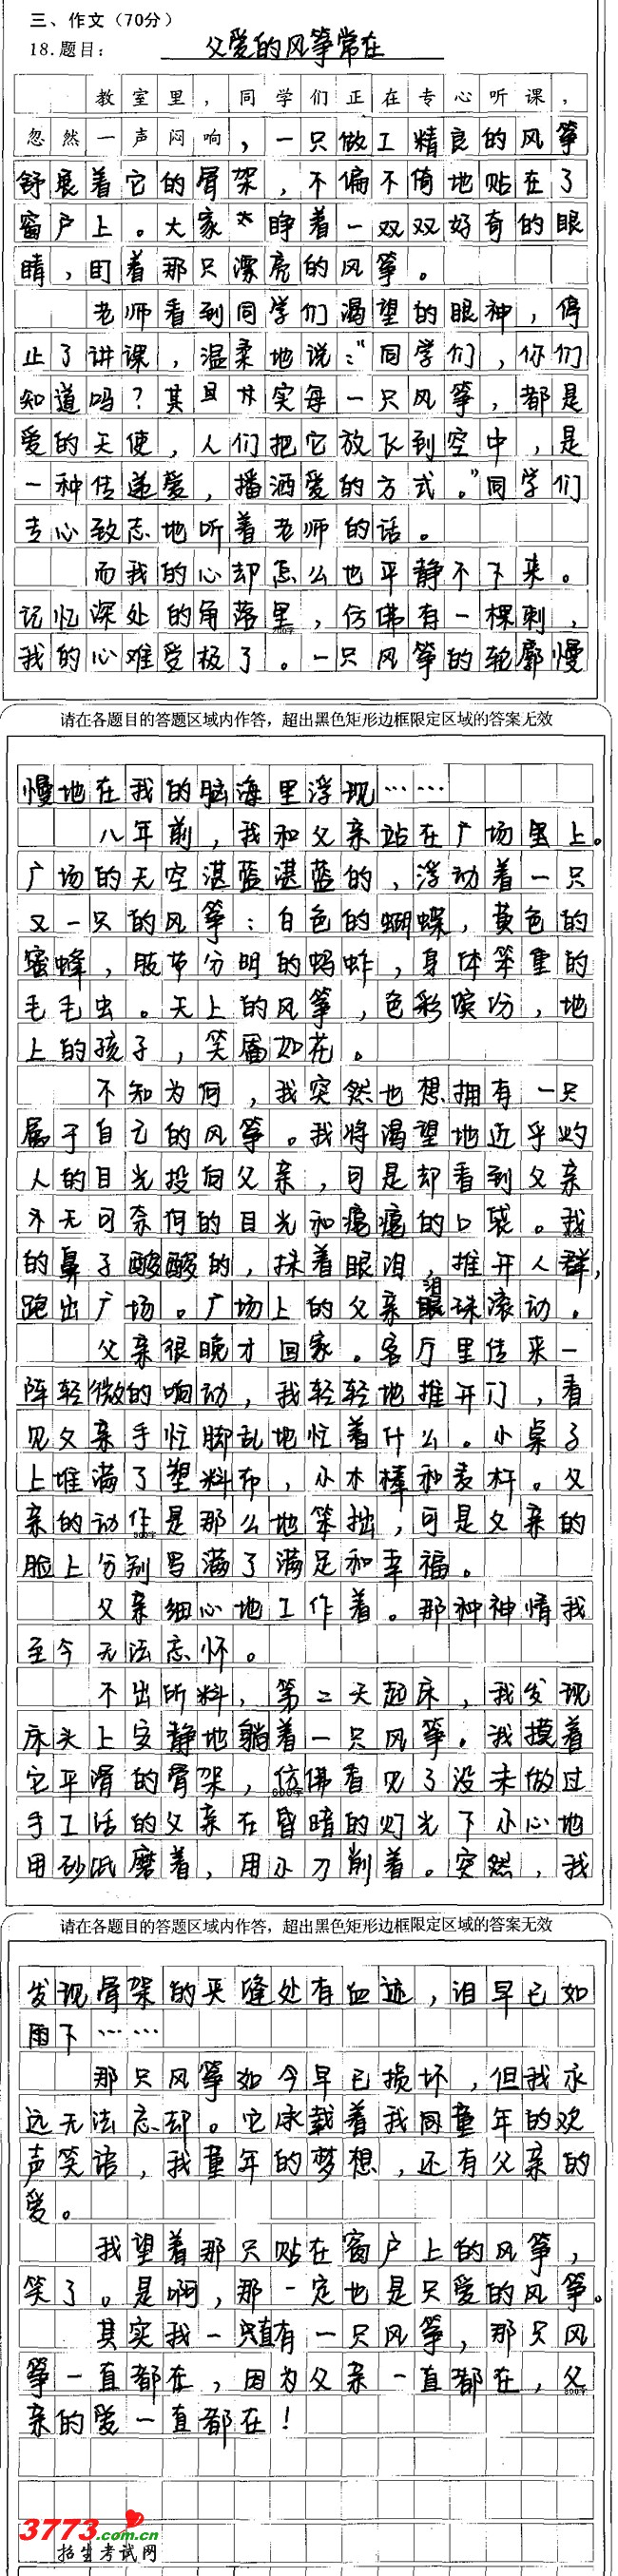 三、作文（70分）
18.题目： 父爱的风筝常在
教室里，同学们正在专心听课，
忽然一声闷响，一只做工精良的风筝
舒展着它的骨架，不偏不倚地贴在了
窗户上。大家睁着一双双好奇的眼
睛，盯着那只漂亮的风筝。
老师看到同学们渴望的眼神，停
止了讲课，温柔地说：“同学们，你们
知道吗？其实每一只风筝，都是
爱的天使，人们把它放飞到空中，是
一种传递爱，播洒爱的方式。”同学们
专心致志地听着老师的话。
而我的心却怎么也平静不下来。
记忆深处的角落里，仿佛有一棵刺，
我的心难受极了。一只风筝的轮廓慢
请在各题目的答题区域内作答，超出黑色矩形边框限定区域的答案无效
慢地在我的脑海里浮现……
八年前，我和父亲站在广场上。
广场的天空湛蓝湛蓝的，浮动着一只
又一只的风筝：白色的蝴蝶，黄色的
蜜蜂，肢节分明的蚂蚱，身体笨重的
毛毛虫。天上的风筝，色彩缤纷，地
上的孩子，笑靥如花。
不知为何，我突然也想拥有一只
属于自己的风筝。我将渴望地近乎灼
人的目光投向父亲，可是却看到父亲
无可奈何的目光和瘪瘪的口袋。我
的鼻子酸酸的，抹着眼泪，推开人群，
跑出广场。广场上的父亲泪珠滚动。
父亲很晚才回家。客厅里传来一
阵轻微的响动，我轻轻地推开门，看
见父亲手忙脚乱地忙着什么。小桌子
上堆满了塑料布，小木棒和麦杆。父
亲的动作是那么地笨拙，可是父亲的
脸上分别写满了满足和幸福。
父亲细心地工作着。那种神情我
至今无法忘怀。
不出所料，第二天起床，我发现
床头上安静地躺着一只风筝。我摸着
它平滑的骨架，仿佛看见了没未做过
手工活的父亲在昏暗的灯光下小心地
用砂纸磨着，用小刀削着。突然，我
请在各题目的答题区域内作答，超出黑色矩形边框限定区域的答案无效
发现骨架的夹缝处有血迹，泪早已如
雨下……
那只风筝如今早已损坏，但我永
远无法忘却。它承载着我同童年的欢
声笑语，我童年的梦想，还有父亲的
爱。
我望着那只贴在窗户上的风筝，
笑了。是啊，那一定也是只爱的风筝。
其实我一直有一只风筝，那只风
筝一直都在，因为父亲一直都在，父
亲的爱一直都在！
3773.com.cn
招生考试网